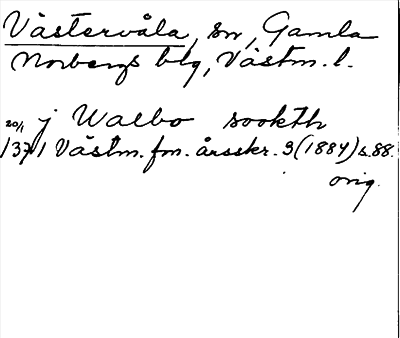 Västervåla, sn, Gamla
Norbergs blg, Västm. l.
20/1 j Walbo sookth
1371 Västm. fm. årsskr. 3 (1884) s. 88.
orig.